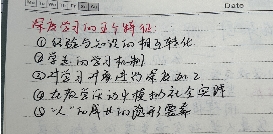 Mo Tu We Th Fr Sa Su
Date
深度学习的五个特征:
①经验与知识的相互转化
②学生的学习机制
③对学习开度进行深度加工
④在教学活动中模拟社会实践
⑤以"人"的成长的隐形要素